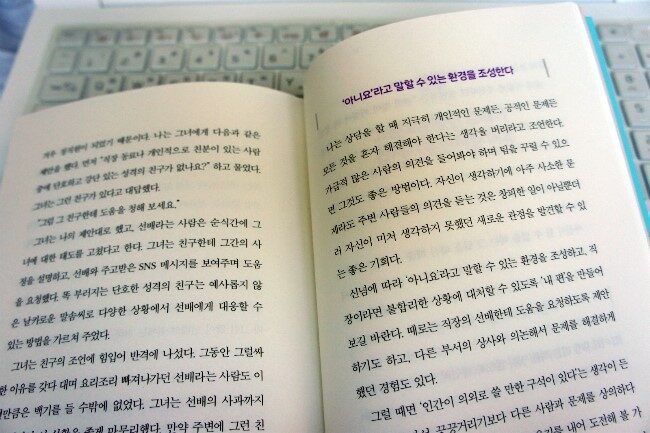 겨우 정직원이 되었기 때문이다. 나는 그녀에게 다음과 같은
제안을 했다. 먼저 "직장 동료나 개인적으로 친분이 있는 사람
중에 단호하고 강단 있는 성격의 친구가 없나요?" 하고 물었다.
그녀는 그런 친구가 있다고 대답했다.
"그럼 그 친구한테 도움을 청해 보세요."
그녀는 나의 제안대로 했고, 선배라는 사람은 순식간에 그
녀에 대한 태도를 고쳤다고 한다. 그녀는 친구한테 그간의 사
정을 설명하고, 선배와 주고받은 SNS 메시지를 보여주며 도움
을 요청했다. 똑 부러지는 단호한 성격의 친구는 예사롭지 않
은 날카로운 말솜씨로 다양한 상황에서 선배에게 대응할 수
있는 방법을 가르쳐 주었다.
그녀는 친구의 조언에 힘입어 반격에 나섰다. 그동안 그럴싸
한 이유를 갖다 대며 요리조리 빠져나가던 선배라는 사람도 이
번만은 백기를 들 수밖에 없었다. 그녀는 선배의 사과까지
좋게 마무리했다. 만약 주변에 그런 친
'아니요'라고 말할 수 있는 환경을 조성한다
나는 상담을 할 때 지극히 개인적인 문제든, 공적인 문제든
모든 것을 혼자 해결해야 한다는 생각을 버리라고 조언한다.
가급적 많은 사람의 의견을 들어봐야 하며 팀을 꾸릴 수 있으
면 그것도 좋은 방법이다. 자신이 생각하기에 아주 사소한 문
제라도 주변 사람들의 의견을 듣는 것은 창피한 일이 아닐뿐더
러 자신이 미처 생각하지 못했던 새로운 관점을 발견할 수 있
는 좋은 기회다.
신념에 따라 '아니요'라고 말할 수 있는 환경을 조성하고, 직
장이라면 불합리한 상황에 대처할 수 있도록 '내 편'을 만들어
보길 바란다. 때로는 직장의 선배한테 도움을 요청하도록 제안
하기도 하고, 다른 부서의 상사와 의논해서 문제를 해결하게
했던 경험도 있다.
그럴 때면 '인간이 의외로 쓸 만한 구석이 있다'는 생각이 든
끙끙거리기보다 다른 사람과 문제를 상의하다
용기를 내어 도전해 볼 가